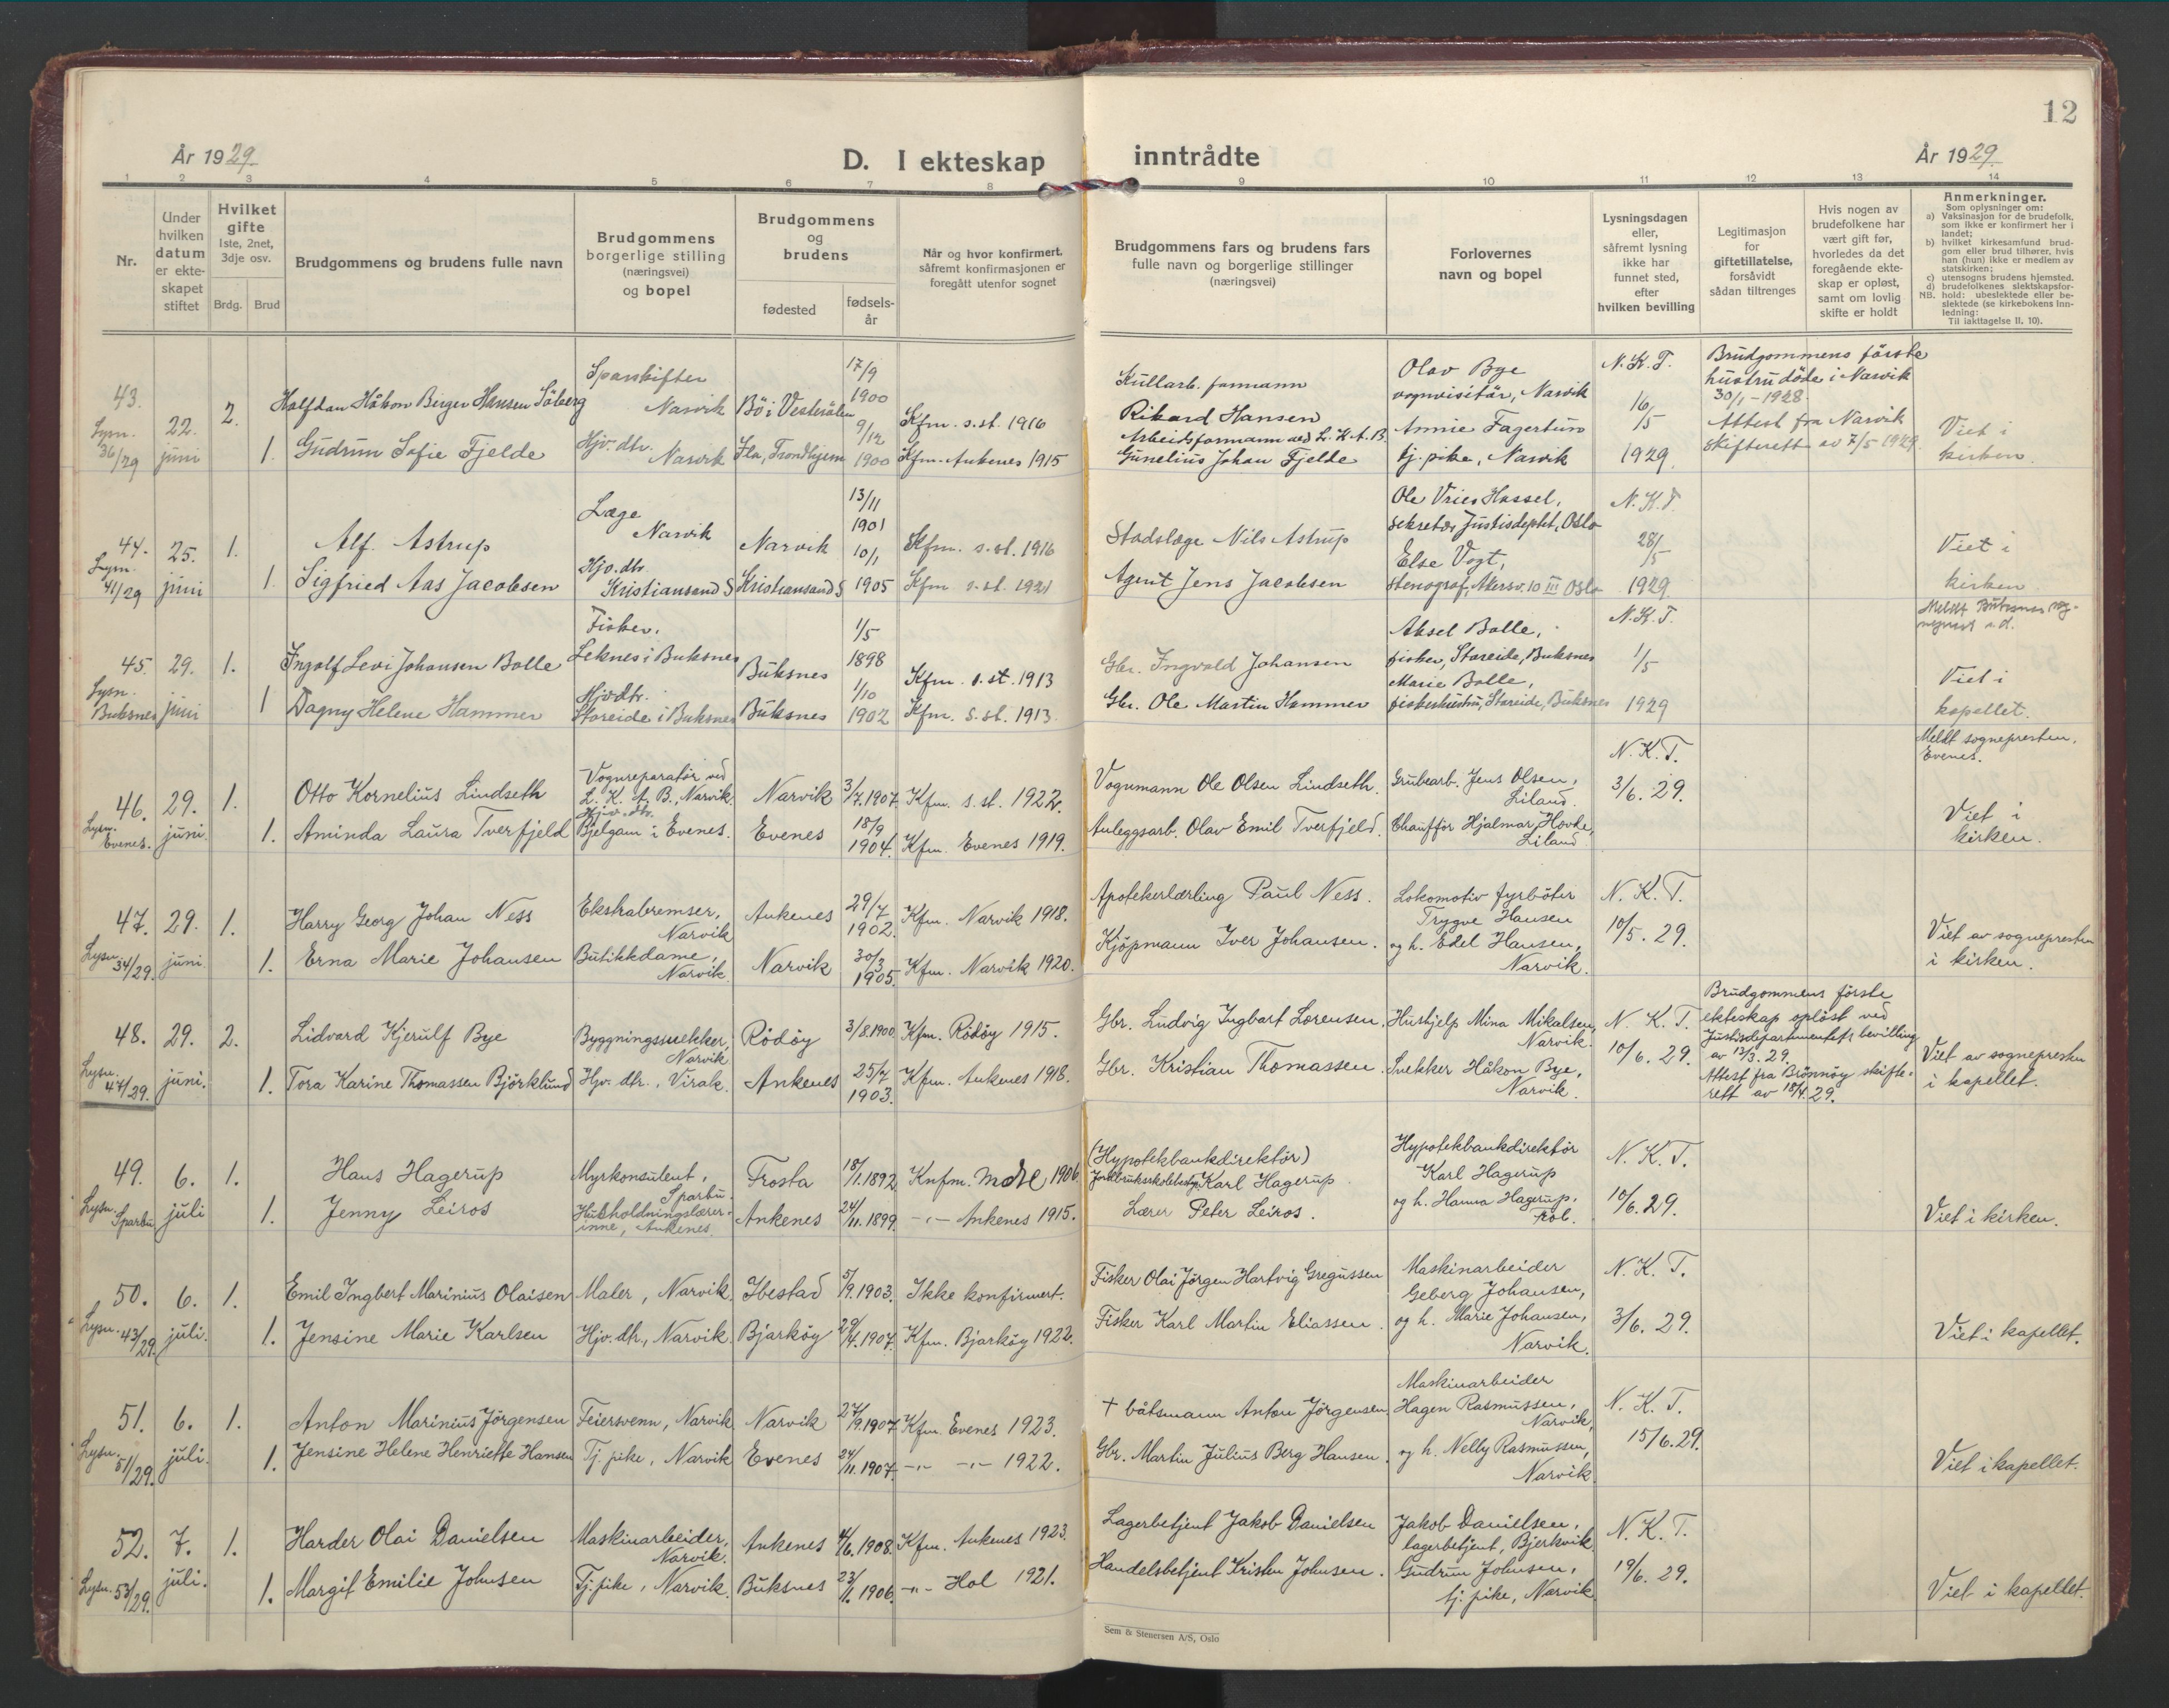 12
År 1929.
D. I ekteskap inntrådte
År 1929.
1 2 3 4 5 6 7 8 9 10 11 12 13 14
Nr.
Under hvilken datum er ekteskapet stiftet
Hvilket gifte
1ste, 2net, 3dje osv.
Brdg. Brud
Brudgommens og brudens fulle navn
Brudgommens borgerlige stilling (næringsvei) og bopel
Brudgommens og brudens
fødested
fødselsår
Når og hvor konfirmert, såfremt konfirmasjonen er foregått utenfor sognet
Brudgommens fars og brudens fars fulle navn og borgerlige stillinger (næringsvei)
Forlovernes navn og bopel
Lysningsdagen eller, såfremt lysning ikke har funnet sted, efter hvilken bevilling
Legitimasjon for giftetillatelse, forsåvidt sådan tiltrenges
Hvis nogen av brudefolkene har vært gift før, hvorledes da det foregående ekteskap er opløst, samt om lovlig skifte er holdt
Anmerkninger.
Som oplysninger om:
a) Vaksinasjon for de brudefolk, som ikke er konfirmert her i landet;
b) hvilket kirkesamfund brudgom eller brud tilhører, hvis han (hun) ikke er medlem av statskirken;
c) utensogns brudens hjemsted.
d) brudefolkenes slektskapsforhold: ubeslektede eller beslektede (se kirkebokens innledning:
NB. Til iakttagelse II, 10).
43. Lysn. 36/29
22. juni
2.
Halfdan Håkon Birger Hansen Söberg
Narvik
Bö i Vesterålen
17/9 1900
Kfm. s.st. 1916
Rikard Hansen
Olav Bye
vognvisitör, Narvik
N.K.T.
16/5 1929
Brudgommens förste
hustru döde i Narvik
30/1-1928.
Attest fra Narvik
skifterett av 7/5 1929.
1.
Gudrun Sofie Fjelde
Hjv. dtr. Narvik
Ila, Trondhjem
9/12 1900
Kfm. Ankenes 1915
Arbeidsformann ved L.K.A.B.
Gunelius Johan Fjelde
Annie Fagertun
tj. pike, Narvik
Viet i
kirken.
44. Lysn. 41/29
25. juni
1.
Alf Astrup
Læge
Narvik
Narvik
13/11 1901
Kfm. s.st. 1916
Stadslæge Nils Astrup
Ole Vries Hassel,
sekretær Justisdeptet, Oslo
N.K.T.
28/5 1929
1.
Sigfried Aas Jacobsen
Hjv. dtr.
Kristiansand S
Kristiansand S
10/1 1905
Kfm s.st. 1921
Agent Jens Jacobsen
Else Vogt,
stenograf, Akersv. 10 III Oslo
Viet i
kirken
45. Lysn. Buksnes
29. juni
1.
Ingolf Levi Johansen Bolle
Fisker.
Leknes i Buksnes
Buksnes
1/5 1898
Kfm. s.st. 1913
Gbr. Ingvald Johansen
Aksel Bolle,
fisker, Storeide, Buksnes
N.K.T.
1/5 1929
1
Dagny Helene Hammer
Hjv dtr.
Storeide i Buksnes
Buksnes
1/10 1902
Kfm. s.st. 1913.
Gbr. Ole Martin Hammer
Marie Bolle,
fiskerhustru, Storeide, Buksnes
Viet i
kapellet.
46. Lysn. Evenes.
29. juni.
1.
Otto Kornelius Lindseth
Vognreparatör ved
L. K. A. B., Narvik.
Narvik
3/7. 1907.
Kfm. s.st. 1922.
Vognmann Ole Olsen Lindseth.
Grubearb. Jens Olsen,
Liland.
N. K. T.
3/6. 29.
Meldt sognepresten,
Evenes.
1.
Aminda Laura Tverfjeld
Hjv. dtr.
Bjelgam i Evenes.
Evenes
18/9 1904.
Kfm. Evenes 1919.
Anleggsarb. Olav Emil Tverfjeld.
Chaufför Hjalmar Hovde,
Liland
Viet i
kirken.
47. Lysn. 34/29.
29. juni
1.
Harry Georg Johan Ness
Ekstrabremser,
Narvik
Ankenes
29/7 1902.
Kfm. Narvik 1918.
Apotekerlærling Paul Ness.
Lokomotiv fyrböter
Trygve Hansen
N. K. T.
10/5. 29.
1.
Erna Marie Johansen
Butikkdame,
Narvik
Narvik
30/3 1905.
Kfm. Narvik 1920.
Kjöpmann Iver Johansen.
og h. Edel Hansen,
Narvik.
Viet av sognepresten
i kirken.
48. Lysn. 47/29.
29. juni.
2.
Lidvard Kjerulf Bye
Byggningssnekker,
Narvik
Rödöy
3/8. 1900.
Kfm. Rödöy 1915.
Gbr. Ludvig Ingbart Lorensen.
Hushjelp Mina Mikalsen,
Narvik.
N. K. T.
10/6. 29.
Brudgommens förste
ekteskap oplöst ved
Justisdepartementets bevilling
av 13/3. 29.
Attest fra Brönnöy skifte-
rett av 18/4. 29.
1.
Tora Karine Thomassen Björklund
Hjv. dtr., Virak.
Ankenes
25/7 1903.
Kfm. Ankenes 1918.
Gbr. Kristian Thomassen.
Snekker Håkon Bye,
Narvik.
Viet av sognepresten
i kapellet.
49. Lysn. Sparbu
6. juli
1.
Hans Hagerup
Myrkonsulent,
Sparbu.
Frosta
18/1. 1892
Knfm. Mære 1906.
(Hypotekbankdirektör)
Karl Hagerup
Hypotekbankdirektör
Karl Hagerup
N. K. T.
10/6. 29.
1.
Jenny Leiros
Husholdningslærer-
inne, Ankenes.
Ankenes
24/11. 1899.
-"- Ankenes 1915.
Lærer Peter Leiros.
og h. Hanna Hagerup,
Röl.
Viet i kirken.
50. Lysn. 43/29.
6. juli.
1.
Emil Ingbert Marinius Olaisen
Maler, Narvik.
Ibestad
5/9. 1903.
Ikke konfirmert.
Fisker Olai Jörgen Hartvig Gregussen
Maskinarbeider
Geberg Johansen,
N. K. T.
3/6. 29.
1.
Jensine Marie Karlsen
Hjv. dtr., Narvik.
Bjarköy
29/4. 1907.
Kfm. Bjarköy 1922.
Fisker Karl Martin Eliassen.
og h. Marie Johansen,
Narvik.
Viet i kapellet.
51. Lysn. 51/29.
6. juli.
1.
Anton Marinius Jörgensen
Feiersvenn, Narvik.
Narvik
27/9. 1907
Kfm. Evenes 1923.
+ båtsmann Anton Jörgensen
Maskinarbeider
Hagen Rasmussen,
Narvik,
N. K. T.
15/6. 29.
1.
Jensine Helene Henriette Hansen
Tj. pike, Narvik
Evenes
24/11. 1907.
-"- -"- 1922.
Gbr. Martin Julius Berg Hansen.
og h. Nelly Rasmussen,
Narvik
Viet i kapellet.
52. Lysn. 53/29.
7. juli.
1.
Harder Olai Danielsen
Maskinarbeider,
Narvik.
Ankenes
4/6. 1908.
Kfm. Ankenes 1923.
Lagerbetjent Jakob Danielsen
Jakob Danielsen,
lagerbetjent, Bjerkvik.
N. K. T.
19/6. 29.
1.
Margit Emilie Johnsen
Tj. pike, Narvik.
Buksnes
23/11. 1906.
-"- Hol 1921.
Handelsbetjent Kristen Johnsen.
Gudrun Johnsen,
tj. pike, Narvik.
Viet i kapellet.
Sem & Stenersen A/S, Oslo